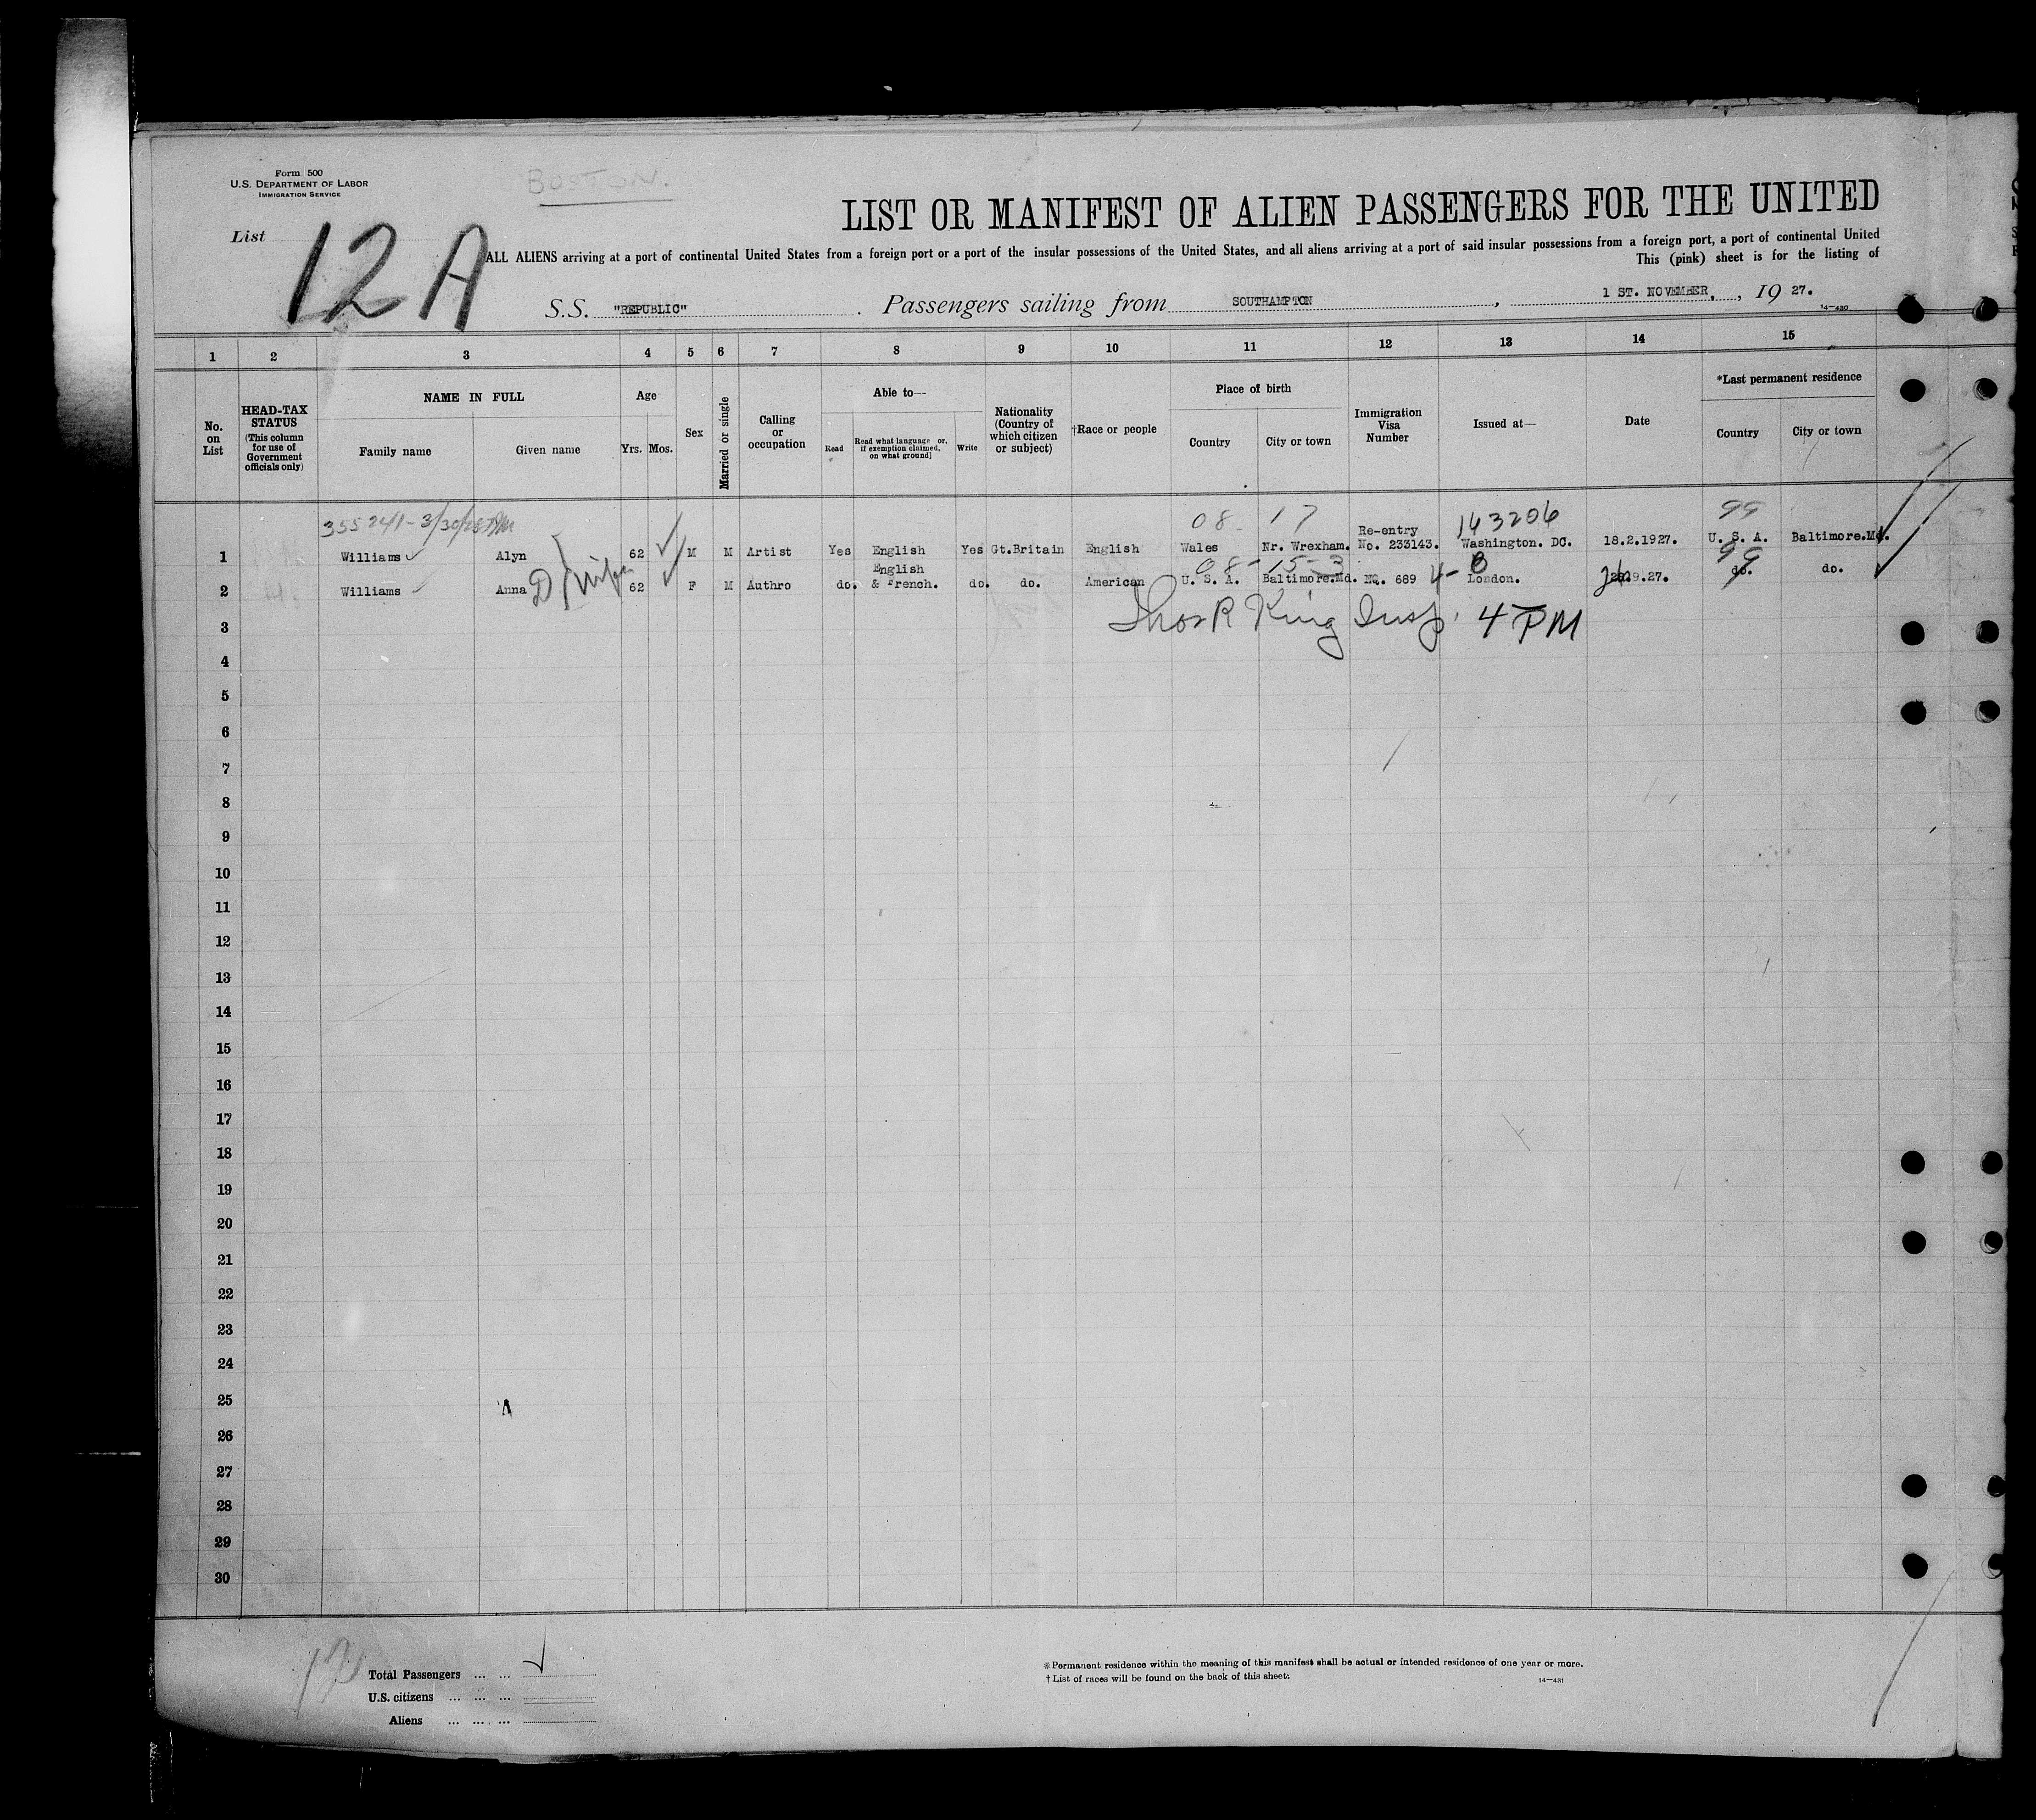 Form 500
U.S. DEPARTMENT OF LABOR
IMMIGRATION SERVICE
BOSTON.
List 12A
LIST OR MANIFEST OF ALIEN PASSENGERS FOR THE UNITED
ALL ALIENS arriving at a port of continental United States from a foreign port or a port of the insular possessions of the United States, and all aliens arriving at a port of said insular possessions from a foreign port, a port of continental United
This (pink) sheet is for the listing of
S.S. "REPUBLIC" Passengers sailing from SOUTHAMPTON, 1 ST. NOVEMBER, 19 27.
14—430
1 2 3 4 5 6 7 8 9 10 11 12 13 14 15
No. on List
HEAD-TAX STATUS (This column for use of Government officials only)
NAME IN FULL
Family name Given name
Age
Yrs. Mos.
Sex
Married or single
Calling or occupation
Able to—
Read Read what language or, if exemption claimed, on what ground] Write
Nationality (Country of which citizen or subject)
†Race or people
Place of birth
Country City or town
Immigration Visa Number
Issued at—
Date
*Last permanent residence
Country City or town
355241-3/30/28 08- 17 143206 99
1 Williams Alyn 62 M M Artist Yes English Yes Gt.Britain English Wales Nr. Wrexham. Re-entry No. 233143. Washington. DC. 18.2.1927. U. S. A. Baltimore.Md.
08-15-3 4-8 99
2 Williams Anna D wife 62 F M Authro do. English & French. do. do. American U. S. A. Baltimore.Md. No. 689 London. 9.27. do. do.
3 Thos R King Insp. 4 PM
4
5
6
7
8
9
10
11
12
13
14
15
16
17
18
19
20
21
22
23
24
25
26
27
28
29
30
Total Passengers ... ...
U.S. citizens ... ... ...
Aliens ... ... ...
*Permanent residence within the meaning of this manifest shall be actual or intended residence of one year or more.
†List of races will be found on the back of this sheet.
14—431